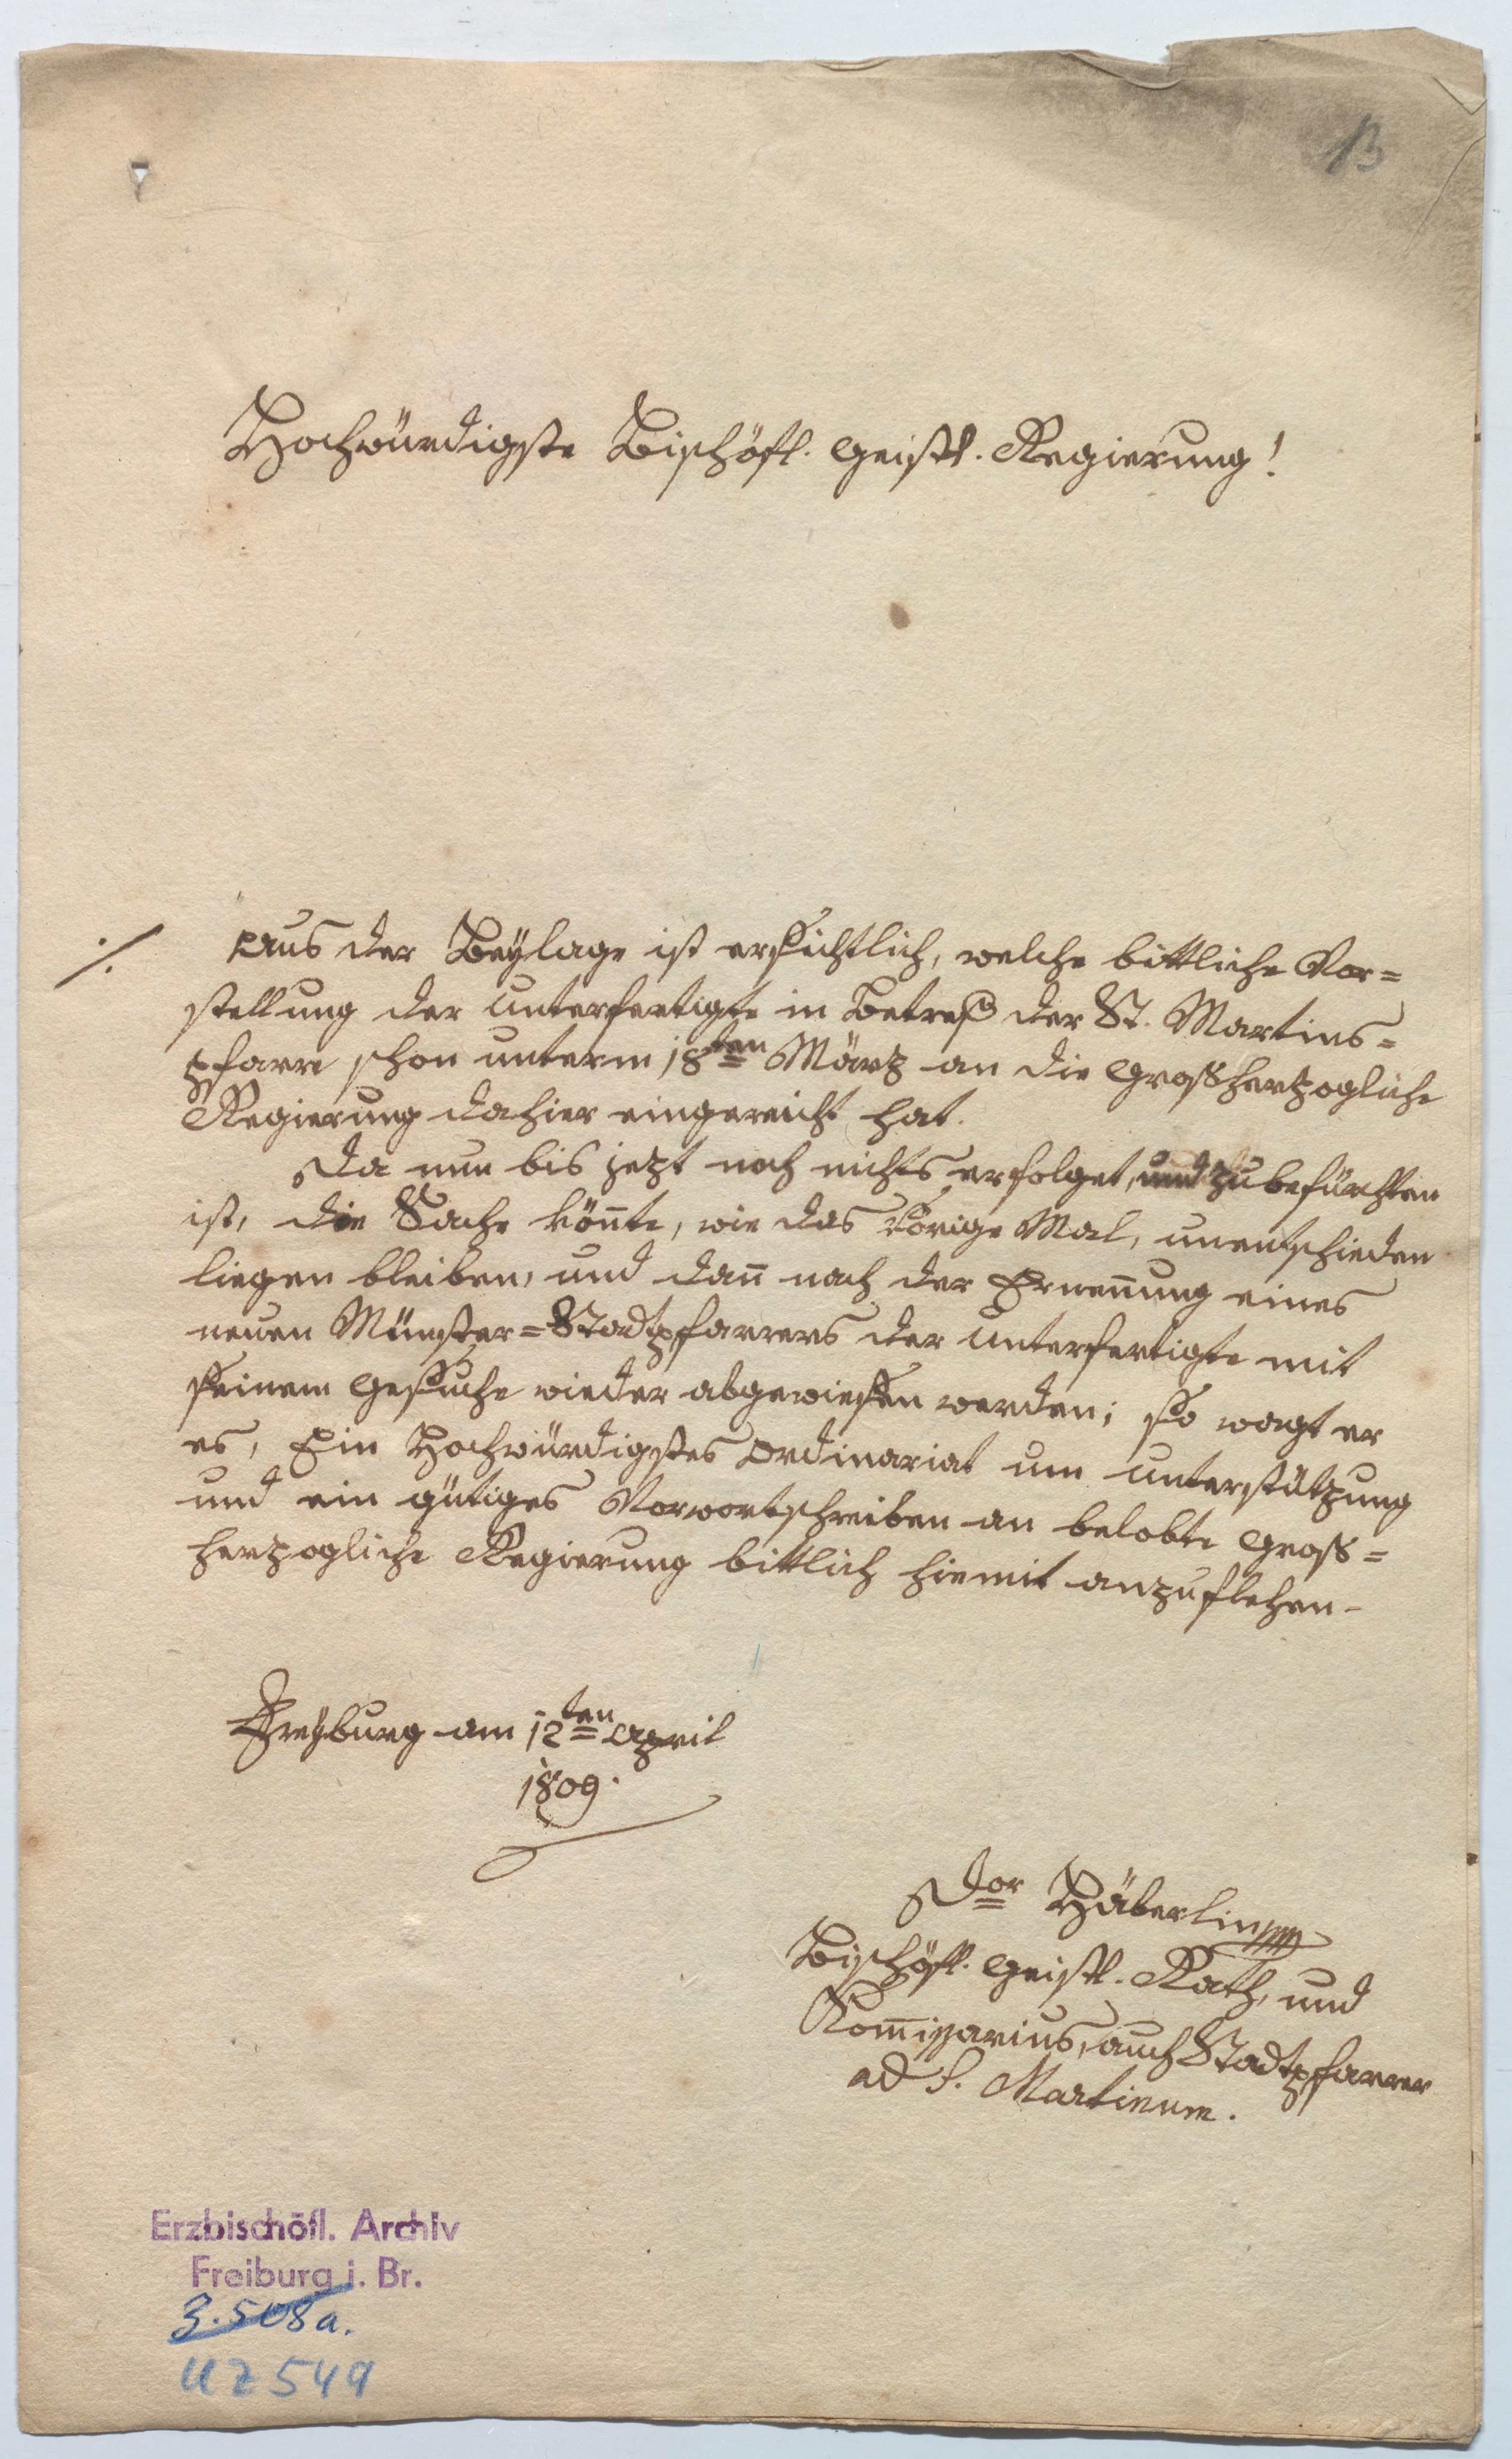 13
Hochwürdigste Bischöfl. Geistl. Regierung!
./. Aus der Beylage ist ersichtlich, welche bittliche Vor=
stellung der Unterfertigte in Betreff der St. Martins=
pfarre schon unterm 18ten März an die Großhertzogliche
Regierung dahier eingereicht hat.
Da nun bis jetzt noch nichts erfolget, und zu befürchten
ist, die Sache könnte, wie das vorige Mal, unentschieden
liegen bleiben, und dann nach der Ernennung eines
neuen Münster=Stadtpfarrers der Unterfertigte mit
seinem Gesuche wieder abgewiesen werden; so wagt er
es, Ein Hochwürdigstes Ordinariat um Unterstützung
und ein gütiges Vorwortschreiben an belobte Groß=
hertzogliche Regierung bittlich hiemit anzuflehen.
Freyburg am 12ten April
1809.
Dor Häberlin
Bischöfl. Geistl. Rath, und
Kommissarius, auch Stadtpfarrer
ad S. Martinum.
Erzbischöfl. Archiv
Freiburg i. Br.
3.508a.
UZ 549